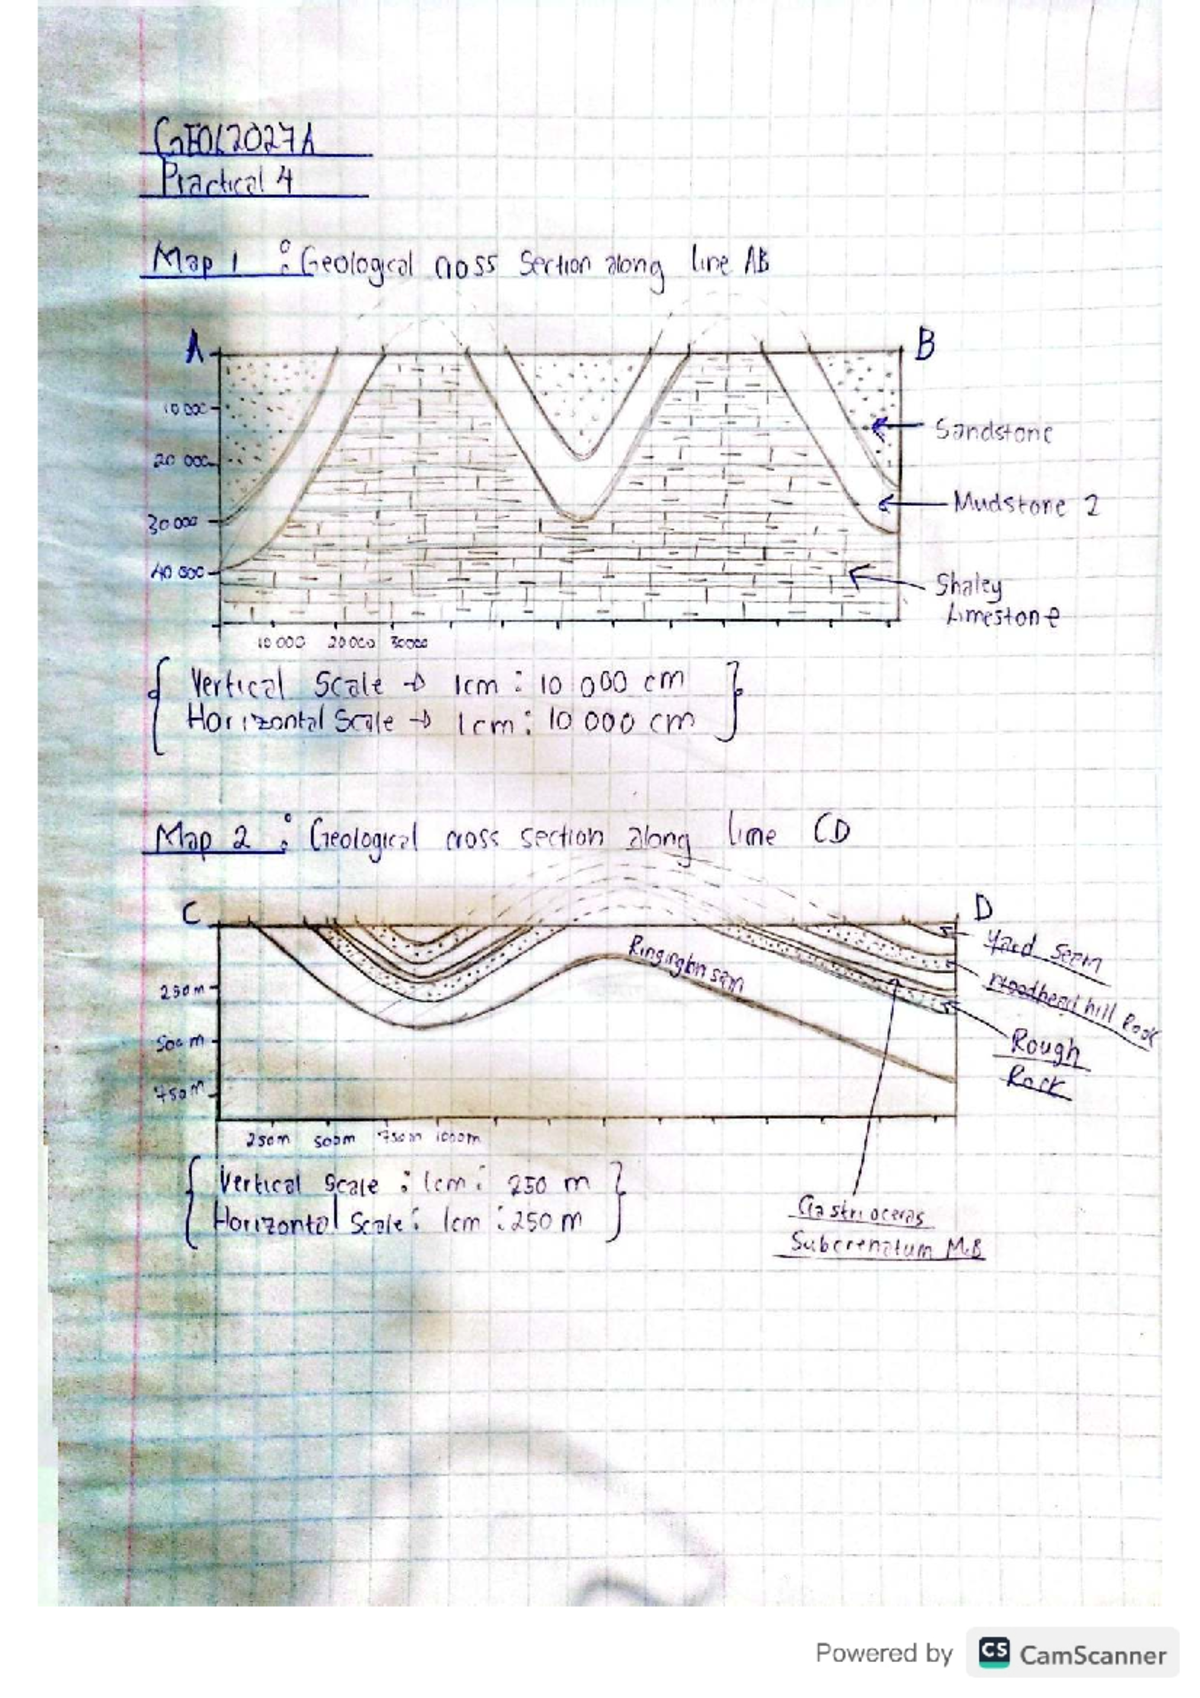 GEOL2027A
Practical 4
Map 1 : Geological cross section along line AB
A
B
10 000
20 000
30 000
40 000
Sandstone
Mudstone 2
Shaley
Limestone
10 000 20 000 30000
Vertical Scale → 1cm : 10 000 cm
Horizontal Scale → 1cm : 10 000 cm
Map 2 : Geological cross section along line CD
C
D
Ringington seam
Yard Seem
Woodhead hill Rock
Rough
Rock
250m
500m
750m
250m 500m 750m 1000m
Vertical Scale : 1cm : 250 m
Horizontal Scale : 1cm : 250 m
Gastrioceras
Subcrenatum M.B
Powered by CS CamScanner